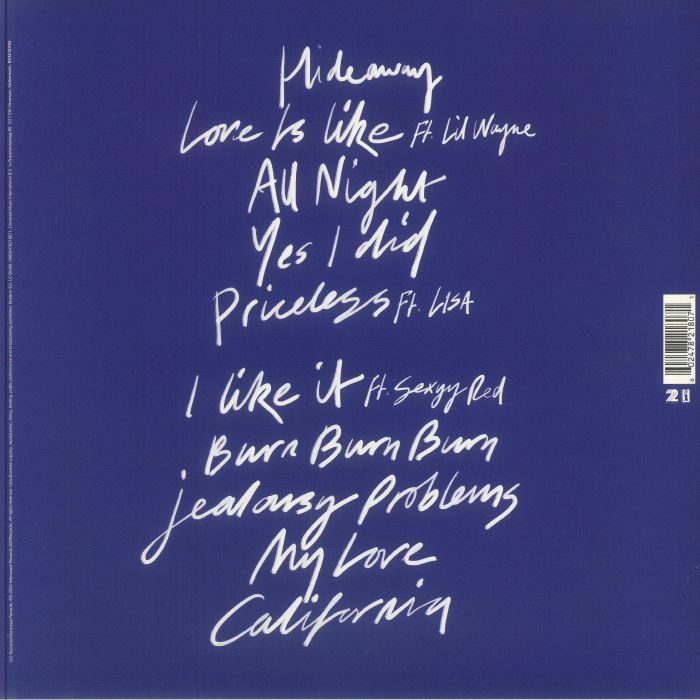 Hideaway
Love Is Like Ft. Lil Wayne
All Night
Yes I did
Priceless Ft. LISA
I like it ft. Sexyy Red
Burn Burn Burn
jealousy Problems
My Love
California
6 02478 21807 1
2 i